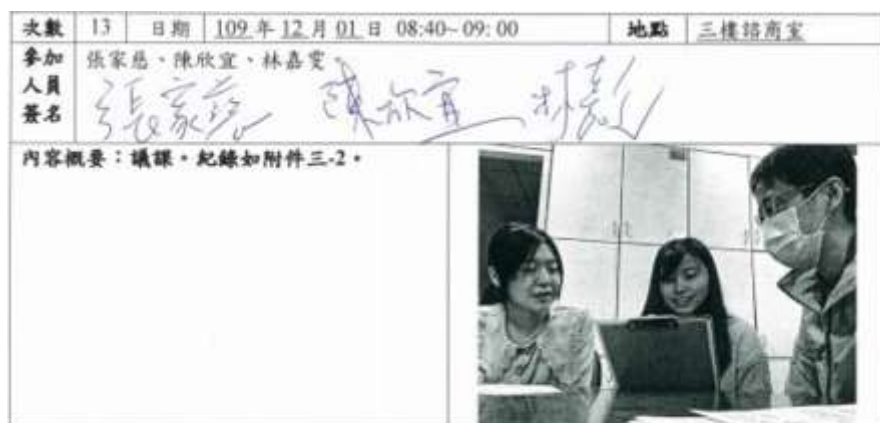 次數 13 日期 109 年 12 月 01 日 08:40~09:00 地點 三樓諮商室
參加人員簽名 張家慈、陳欣宜、林嘉雯
張家慈 陳欣宜
內容概要：議課。紀錄如附件三-2。